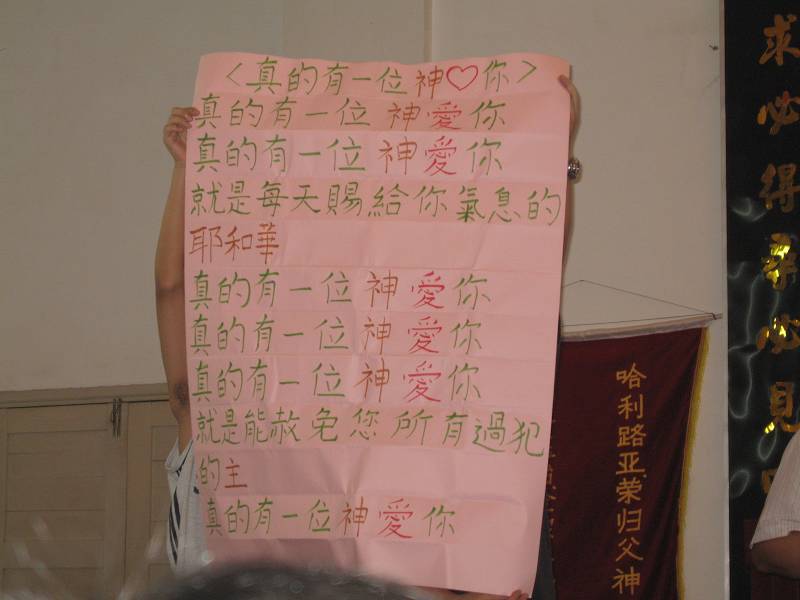 <真的有一位神♡你>
真的有一位神愛你
真的有一位神愛你
就是每天賜給你氣息的
耶和華
真的有一位神愛你
真的有一位神愛你
真的有一位神愛你
就是能赦免您所有過犯
的主
真的有一位神愛你
哈利路亚荣归父神
求必得尋必見